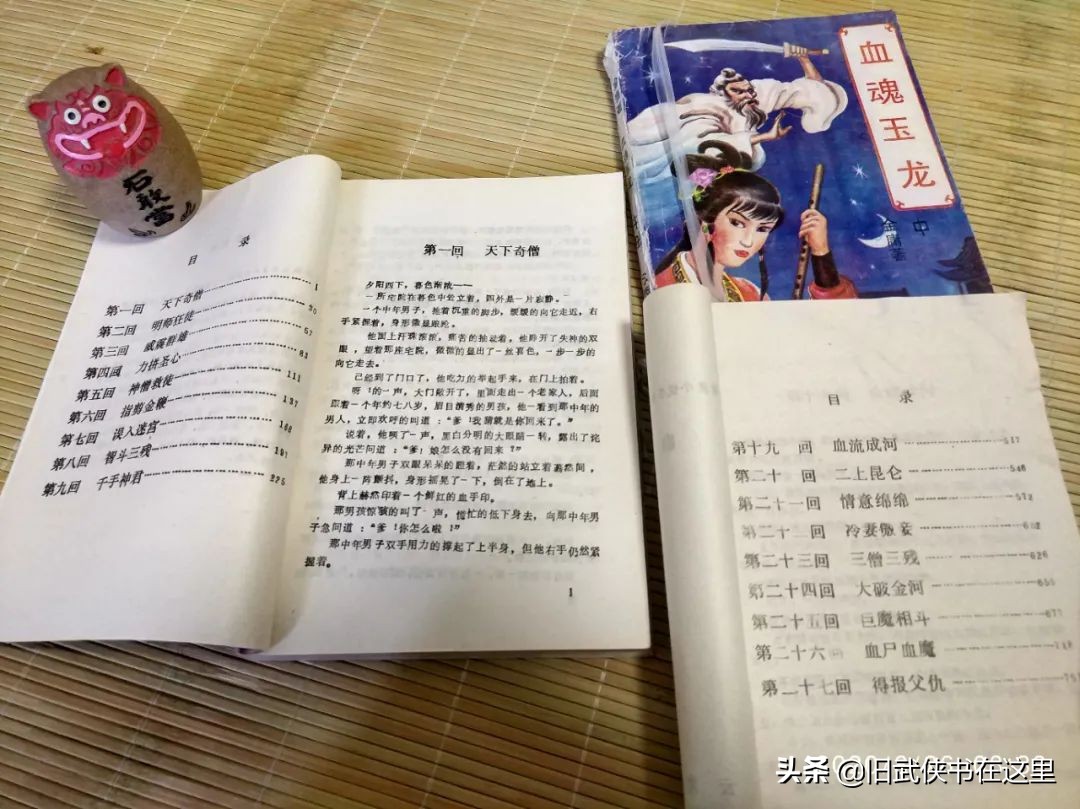 石敢當
目 录
第一回 天下奇僧 1
第二回 明师狂徒 30
第三回 威震群雄 57
第四回 力拼圣心 81
第五回 神僧救徒 111
第六回 指剪金鞭 137
第七回 误入迷宫 168
第八回 智斗三残 191
第九回 千手神君 225
第一回 天下奇僧
夕阳西下,暮色渐浓——
一所宅院在暮色中耸立着,四外是一片寂静。
一个中年男子,拖着沉重的脚步,缓缓的向它走近,右
手紧握着,身形像是踉跄。
他面上汗珠滚滚,痛苦的抽动着,他睁开了失神的双
眼,望着那座宅院,微微的显出了一丝喜色,一步一步的
向它走去。
已经到了门口了,他吃力的举起手来,在门上拍着。
呀!的一声,大门敞开了,里面走出一个老家人,后面
跟着一个年约七八岁,眉目清秀的男孩,他一看到那中年的
男人,立即欢呼的叫道:“爹!我猜就是你回来了。”
说着,他咦了一声,黑白分明的大眼睛一转,露出了诧
异的光芒问道:“爹!娘怎么没有回来?”
那中年男子双眼呆呆的瞪着,茫然的站立着,蓦然间,
他身上一阵颤抖,身形摇晃了一下,倒在了地上。
背上赫然印着一个鲜红的血手印。
那男孩惊骇的叫了一声,慌忙的低下身去,向那中年男
子急问道:“爹!你怎么啦!”
那中年男子双手阻力的撑起了上半身,但他右手仍然紧
握着。
1
血魂玉龙
中
金庸著
目 录
第十九 回 血流成河 517
第二十 回 二上昆仑 548
第二十一回 情意绵绵 572
第二十二回 冷妻傲妾 602
第二十三回 三僧三残 626
第二十四回 大破金河 655
第二十五回 巨魔相斗 677
第二十六回 血尸血魔
第二十七回 得报父仇
头条 @旧武侠书在这里